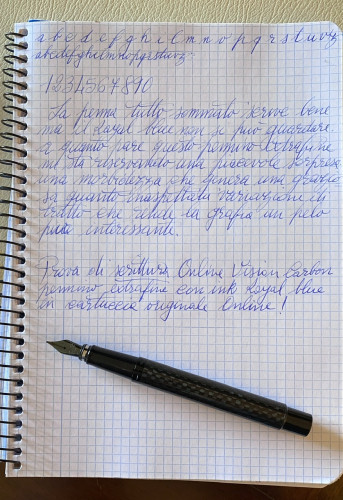 a b c d e f g h i l m n o p q r s t u v z
abcdefghilmnopqrstuvz
1234567890
La penna tutto sommato scrive bene
ma il Royal blue non si può guardare.
E quanto pare questo pennino extrafine
mi sta riservando una piacevole sorpresa
una morbidezza che genera una grafia
sa quanto inaspettata variazione di
tratto che rende la grafia un pelo
più interessante.
Prova di scrittura Online Vision Carbon
pennino extrafine con ink Royal blue
in cartuccia originale Online!